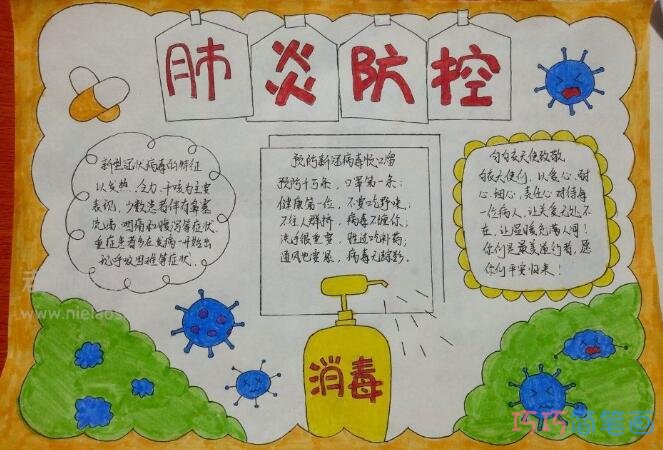 肺炎防控
新型冠状病毒的特征
以发热、乏力、干咳为主要
表现。少数患者伴有鼻塞
流涕、咽痛和腹泻等症状。
重症患者多在发病一周后出
现呼吸困难等症状。
预防新冠病毒顺口溜
预防千万条,口罩第一条;
健康第一位,不要吃野味;
不往人群挤,病毒不缠你;
洗手很重要,胜过吃补药;
通风也要紧,病毒无踪影。
向白衣天使致敬
白衣天使们,以爱心、耐
心、细心、责任心对待每
一位病人,让关爱无处不
在,让温暖充满人间!
你们是最美逆行者,愿
你们平安归来!
消毒
www.nielaos
巧巧简笔画